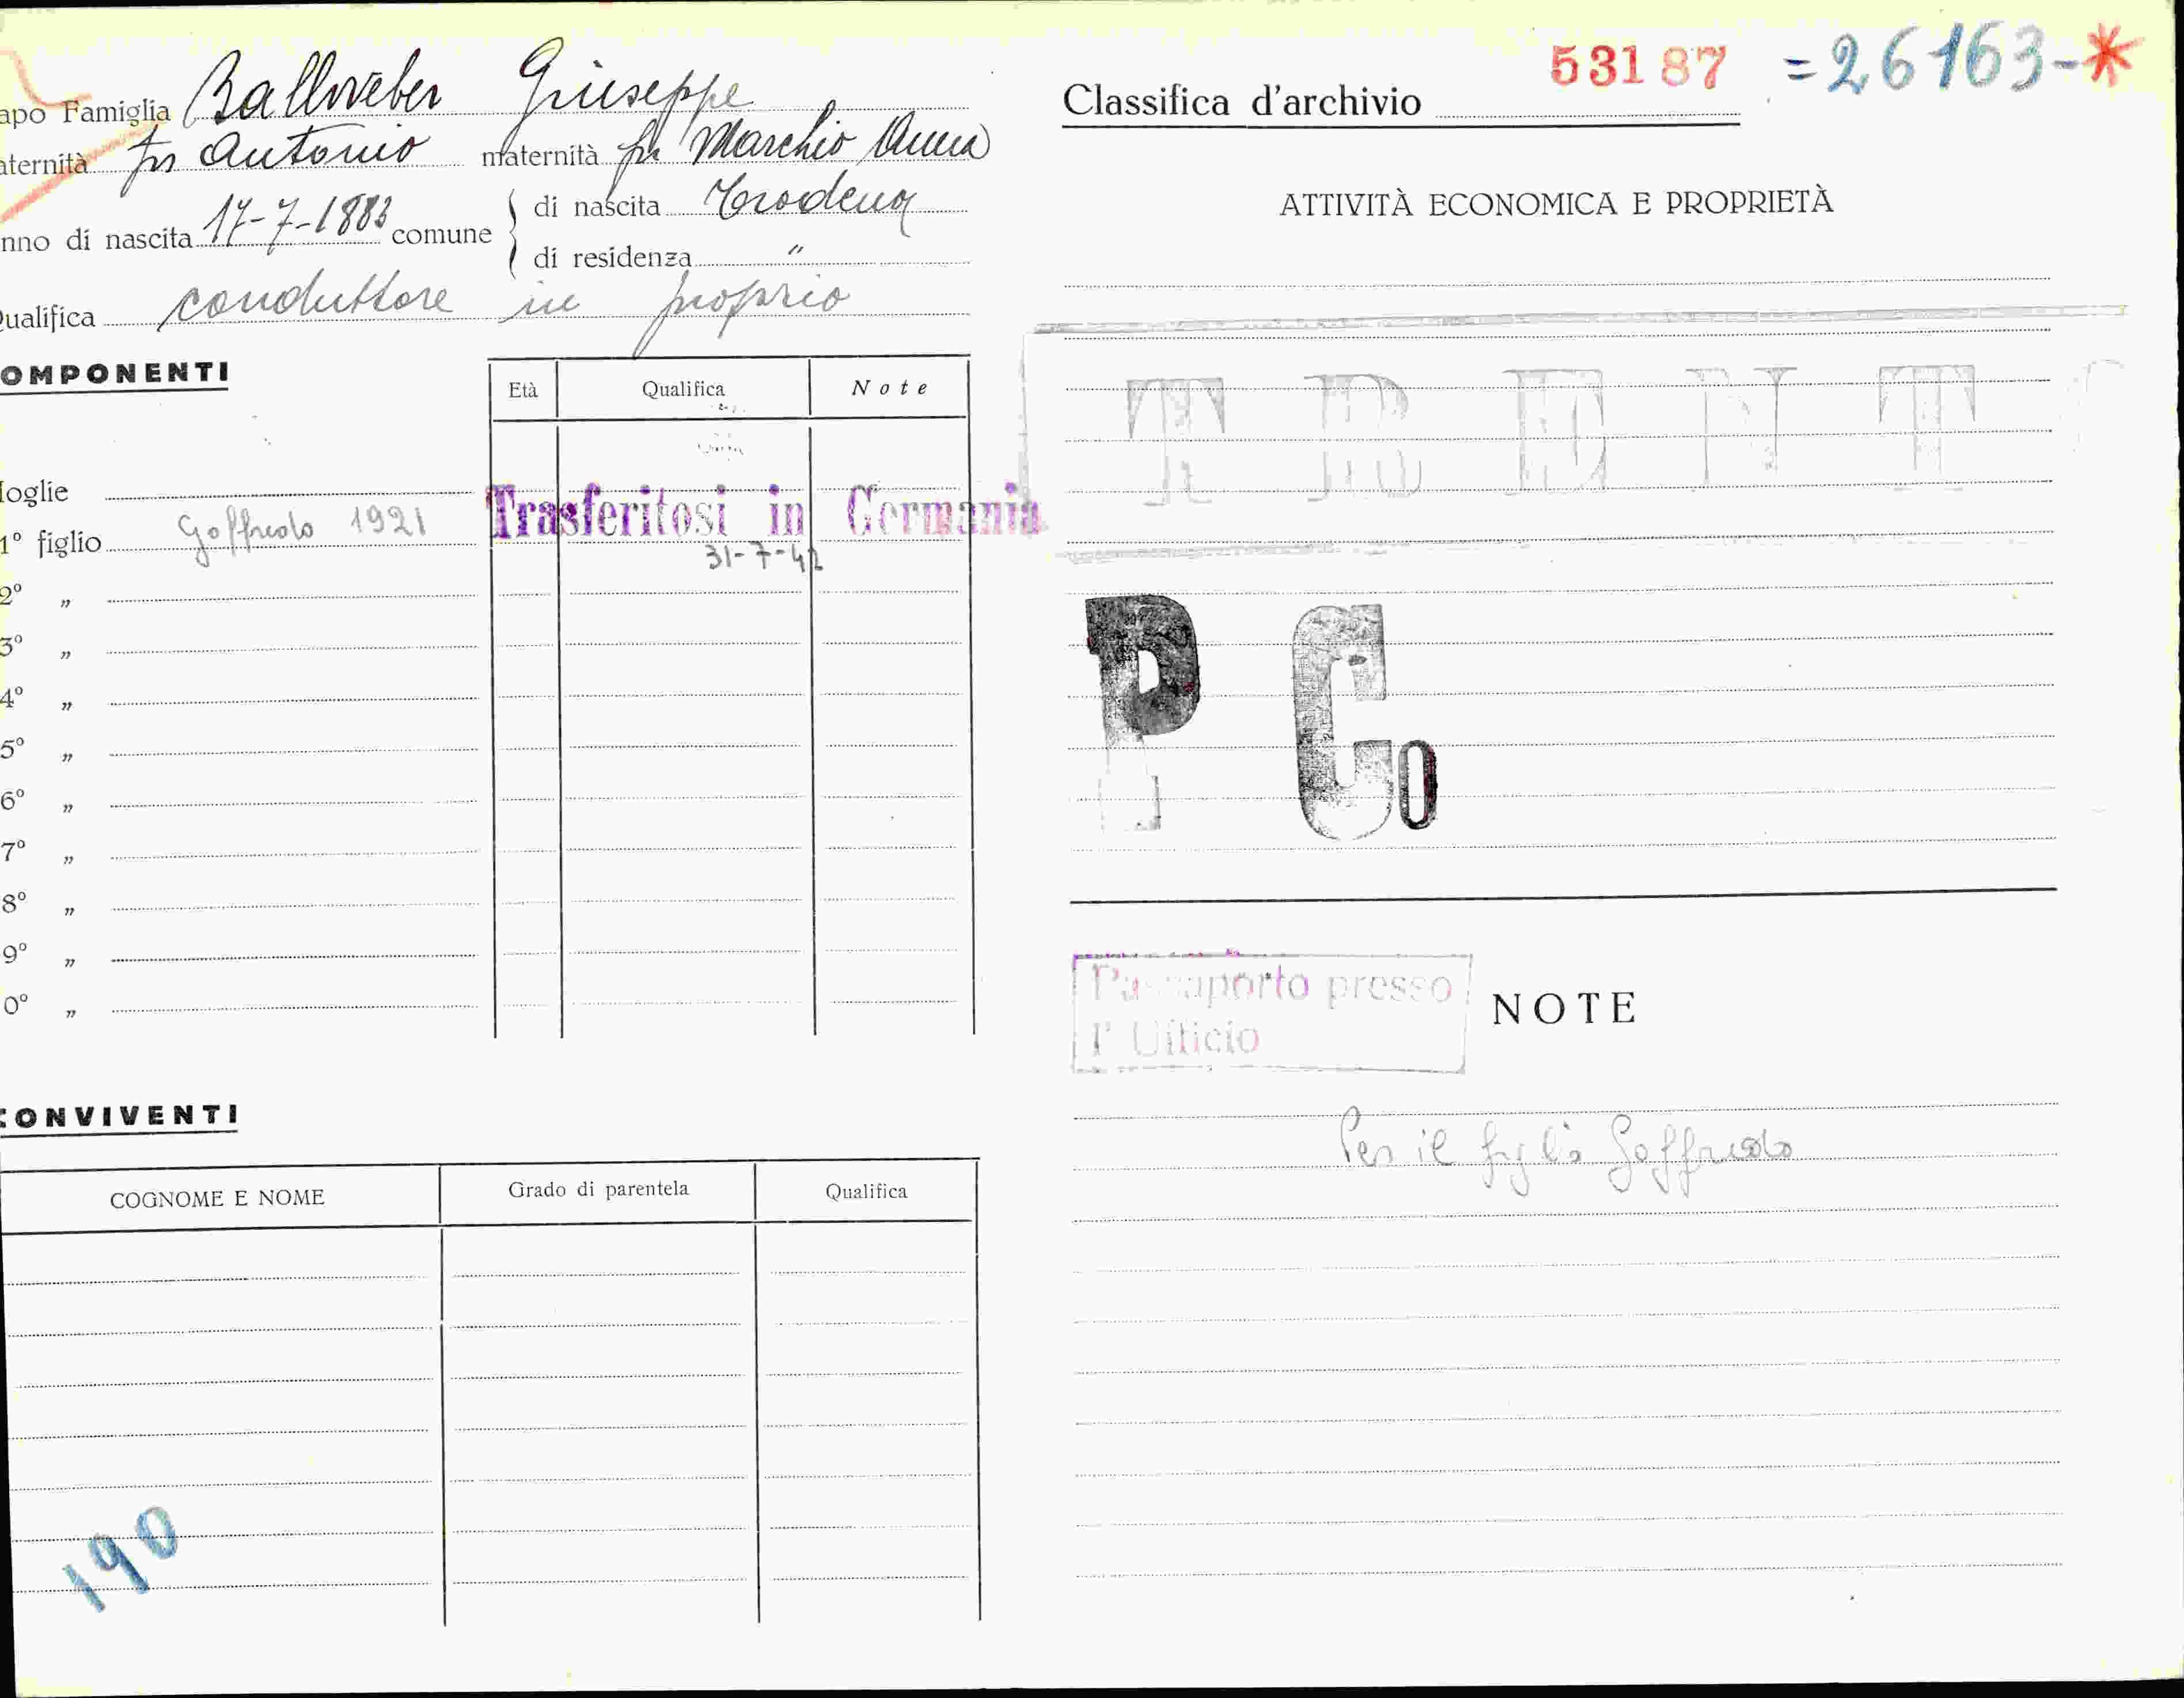 apo Famiglia Ballweber Giuseppe
aternità fu Antonio maternità fu Marchio Anna
nno di nascita 17-7-1883 comune di nascita Trodena
di residenza "
ualifica conduttore in proprio
OMPONENTI
Età Qualifica Note
oglie
Trasferitosi in Germania
1º figlio Goffredo 1921
31-7-42
2º "
3º "
4º "
5º "
6º "
7º "
8º "
9º "
0º "
CONVIVENTI
COGNOME E NOME Grado di parentela Qualifica
190
53187 =26163-*
Classifica d'archivio
ATTIVITÀ ECONOMICA E PROPRIETÀ
TRENTO
P Co
Passaporto presso
l'Ufficio
NOTE
Per il figlio Goffredo